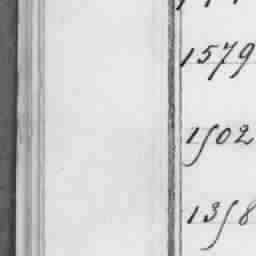 1579
1502
1358